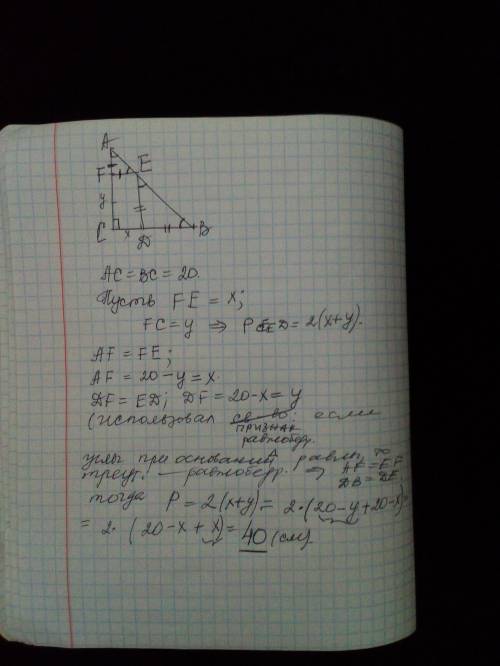 A
F
E
y
C
x
D
B
AC = BC = 20.
Пусть FE = x;
FC = y ⇒ P CFED = 2(x+y).
AF = FE;
AF = 20 - y = x.
DF = ED; DF = 20 - x = y
(использовал св-во: если
признак
равнобедр.
углы при основании равны, то
треуг. — равнобедр. ⇒ AF = EF
DB = DE)
тогда P = 2(x+y) = 2·(20-y+20-x) =
= 2·(20-x+x) = 40 (см)